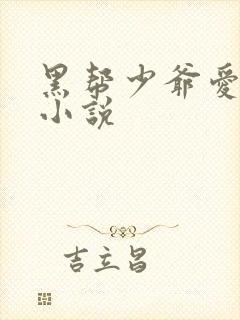 黑帮少爷愛
小說
吉立昌